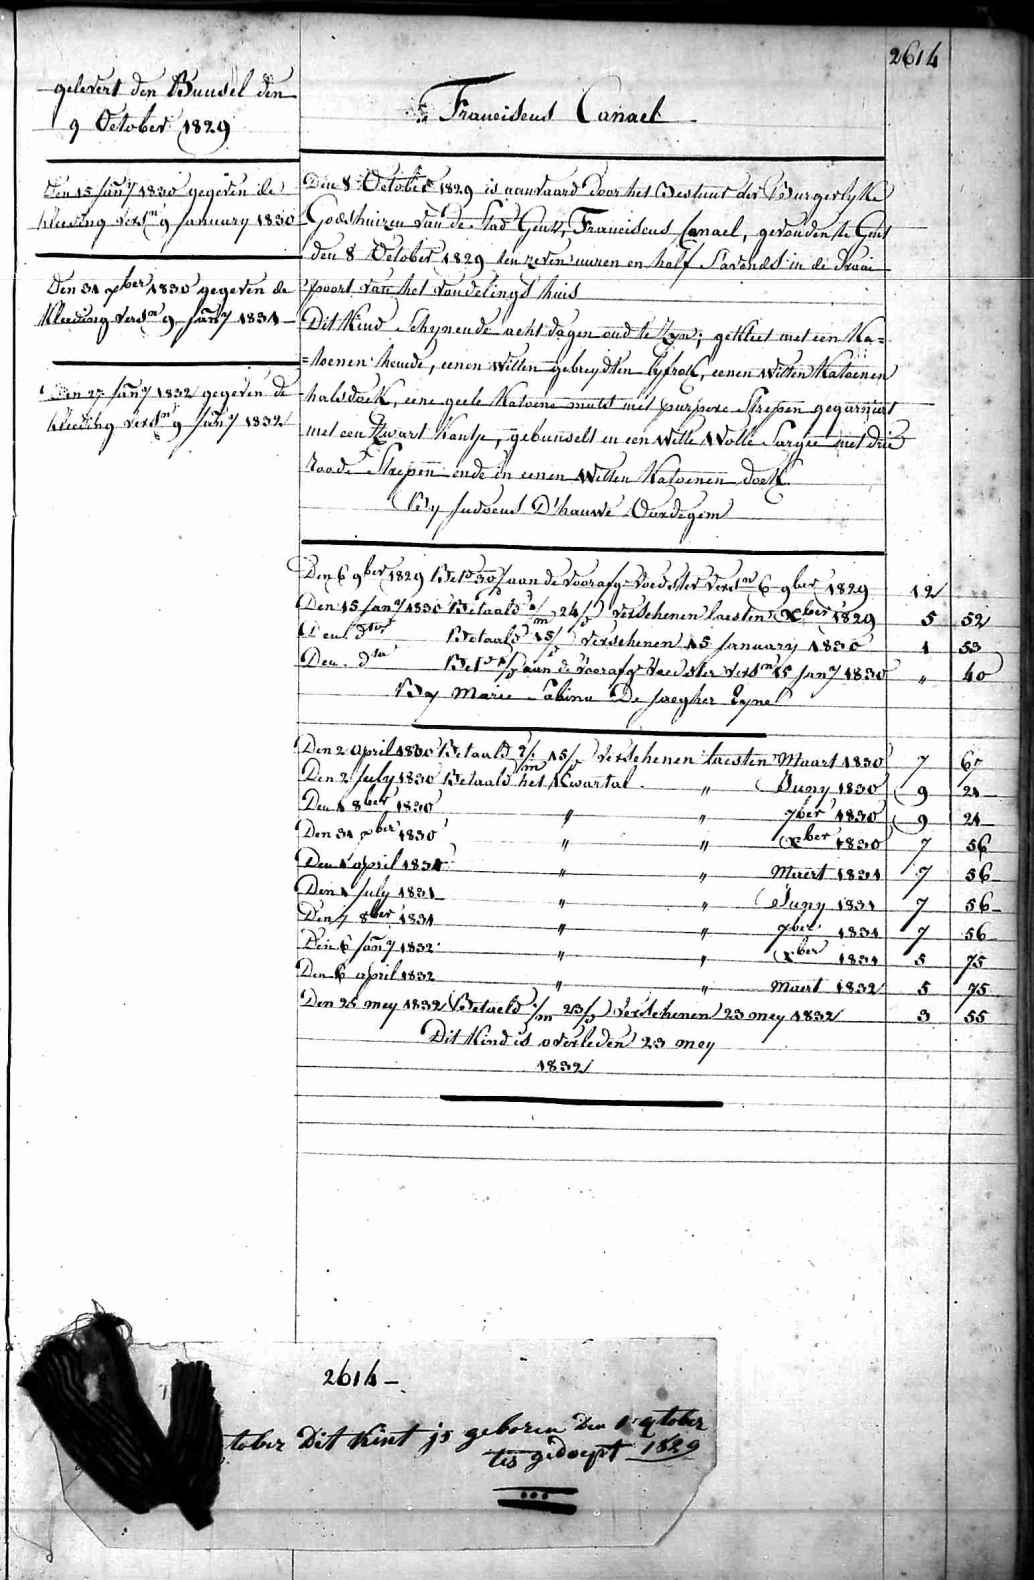 2614
gelevert den Bunsel den
9 October 1829
Franciscus Canael
Den 15 Jany 1830 gegeven de
kleeding versn 9 January 1830
Den 31 xber 1830 gegeven de
kleeding versn 9 Jany 1831
Den 27 Jany 1832 gegeven de
kleeding versn 9 Jany 1832
Den 8 October 1829 is aanvaard door het Bestuur der Burgerlyke
Godshuizen van de Stad Gent, Franciscus Canael, gevonden te Gent
den 8 October 1829 ten zeven uuren en half S'avonds in de draai
poort van het vondelings huis
Dit kind Schynende acht dagen oud te Zyn; gekleet met een Ka=
=toenen hemde, eenen witten gebreydten lyfrok, eenen witten Katoenen
halsdoek, eene geele Katoene muts met purpere Strepen gegarniert
met een Zwart Kantje, gebunselt in een witte wolle Sargie met drie
roode Strepen ende in eenen witten Katoenen doek
By Judocus D'hauwe Oordegem
Den 6 9ber 1829 Betd 30/ aan de voorafge voedster versn 6 9ber 1829 12
Den 15 Jany 1830 Betaald 2/m 24/ verschenen laesten xber 1829 5 52
Den dito Betaald 15/ verschenen 15 January 1830 1 53
Den dto Betd aan de voorafge voedster versn 15 Jany 1830 " 40
By Marie Sabina De Jaegher Eyne
Den 2 april 1830 Betaald 2/m 15/ verschenen laesten Maart 1830 7 67
Den 2 July 1830 Betaald het Kwartal " Juny 1830 9 21
Den 1 8ber 1830 " " 7ber 1830 9 21
Den 31 xber 1830 " " xber 1830 7 56
Den 1 april 1831 " " Maert 1831 7 56
Den 1 July 1831 " " Juny 1831 7 56
Den 7 8ber 1831 " " 7ber 1831 7 56
Den 6 Jany 1832 " " xber 1831 5 75
Den 6 april 1832 " " Maert 1832 5 75
Den 25 mey 1832 Betaeld 1/m 23/ verschenen 23 mey 1832 3 55
Dit Kind is overleden 23 mey
1832
2614
tober Dit Kint js geboren Den 1 october
tis gedoept 1829